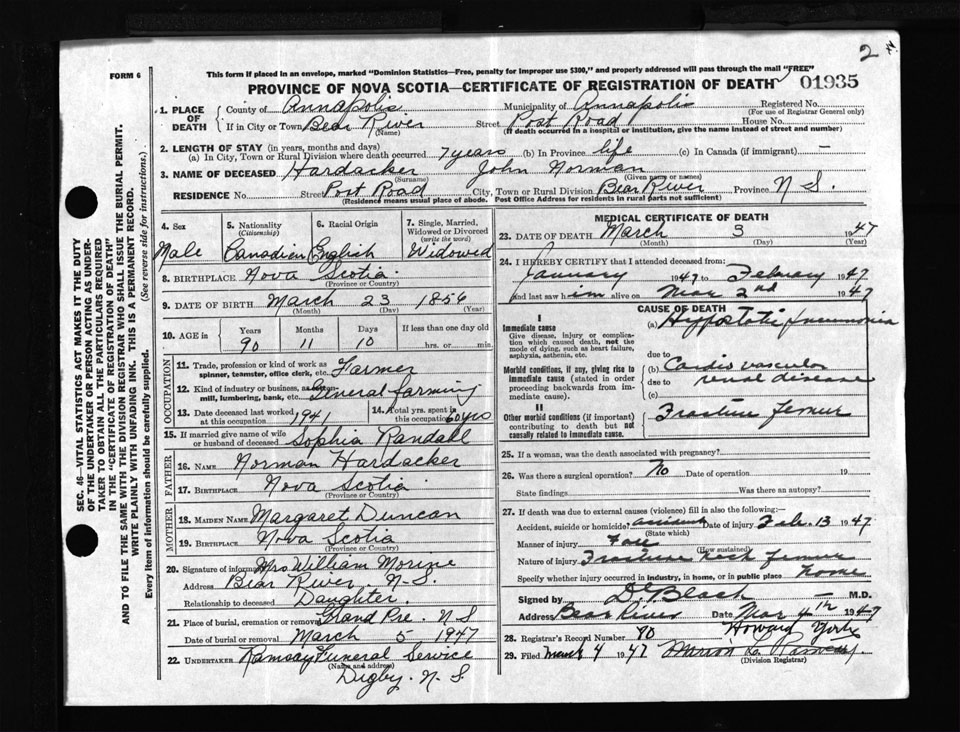 2
FORM 6
This form if placed in an envelope, marked "Dominion Statistics—Free, penalty for improper use $300," and properly addressed will pass through the mail "FREE"
PROVINCE OF NOVA SCOTIA—CERTIFICATE OF REGISTRATION OF DEATH 01935
1. PLACE OF DEATH County of Annapolis Municipality of Annapolis Registered No.
(For use of Registrar General only)
If in City or Town Bear River Street Post Road House No.
(Name) (If death occurred in a hospital or institution, give the name instead of street and number)
2. LENGTH OF STAY (in years, months and days)
(a) In City, Town or Rural Division where death occurred 7 years (b) In Province life (c) In Canada (if immigrant) —
3. NAME OF DECEASED Hardacker John Norman
(Surname) (Given name or names)
RESIDENCE No. Street Post Road City, Town or Rural Division Bear River Province N S.
(Residence means usual place of abode. Post Office Address for residents in rural parts not sufficient)
SEC. 46—VITAL STATISTICS ACT MAKES IT THE DUTY
OF THE UNDERTAKER OR PERSON ACTING AS UNDER-
TAKER TO OBTAIN ALL THE PARTICULARS REQUIRED
IN THE "CERTIFICATE OF REGISTRATION OF DEATH"
AND TO FILE THE SAME WITH THE DIVISION REGISTRAR WHO SHALL ISSUE THE BURIAL PERMIT.
WRITE PLAINLY WITH UNFADING INK. THIS IS A PERMANENT RECORD.
Every item of information should be carefully supplied. (See reverse side for instructions.)
4. Sex 5. Nationality (Citizenship) 6. Racial Origin 7. Single, Married, Widowed or Divorced (write the word)
Male Canadian English Widowed
8. BIRTHPLACE Nova Scotia
(Province or Country)
9. DATE OF BIRTH March 23 1856
(Month) (Day) (Year)
10. AGE in Years Months Days If less than one day old
90 11 10 hrs. or min.
OCCUPATION
11. Trade, profession or kind of work as spinner, teamster, office clerk, etc. Farmer
12. Kind of industry or business, as mill, lumbering, bank, etc. General farming
13. Date deceased last worked at this occupation 1941 14. Total yrs. spent in this occupation 60 yrs
15. If married give name of wife or husband of deceased Sophia Randall
FATHER
16. NAME Norman Hardacker
17. BIRTHPLACE Nova Scotia
(Province or Country)
MOTHER
18. MAIDEN NAME Margaret Duncan
19. BIRTHPLACE Nova Scotia
(Province or Country)
20. Signature of informant Mrs William Morine
Address Bear River. N-S.
Relationship to deceased Daughter.
21. Place of burial, cremation or removal Grand Pre. N S
Date of burial or removal March 5 1947
22. UNDERTAKER Ramsay Funeral Service
(Name and address)
Digby. N. S
MEDICAL CERTIFICATE OF DEATH
23. DATE OF DEATH March 3 1947
(Month) (Day) (Year)
24. I HEREBY CERTIFY that I attended deceased from:
January 1947 to February 1947
and last saw him alive on Mar 2nd 1947
CAUSE OF DEATH
I
Immediate cause
Give disease, injury or complication which caused death, not the mode of dying, such as heart failure, asphyxia, asthenia, etc.
(a) Hypostatic pneumonia
due to
Morbid conditions, if any, giving rise to immediate cause (stated in order proceeding backwards from immediate cause).
(b) Cardio vascular
due to renal disease
(c)
II
Other morbid conditions (if important) contributing to death but not causally related to immediate cause.
Fracture femur
25. If a woman, was the death associated with pregnancy?
26. Was there a surgical operation? No Date of operation 19
State findings Was there an autopsy?
27. If death was due to external causes (violence) fill in also the following:
Accident, suicide or homicide? accident Date of injury Feb. 13 1947
(State which)
Manner of injury Fall
(How sustained)
Nature of injury Fracture neck femur
Specify whether injury occurred in industry, in home, or in public place home
Signed by Black M.D.
Address Bear River Date Mar 4th 1947
28. Registrar's Record Number 90 Howard York
29. Filed March 4 1947
(Division Registrar)